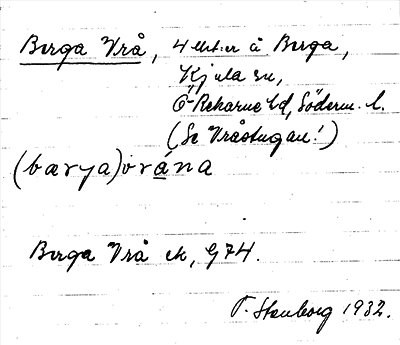 Berga Vrå, 4 llht:er å Berga,
Kjula sn,
Ö-Rekarne hd, Söderm. l.
(Se Vråstugan!)
(bærya) vrána
Berga Vrå ek, G74.
T. Stenborg 1932.